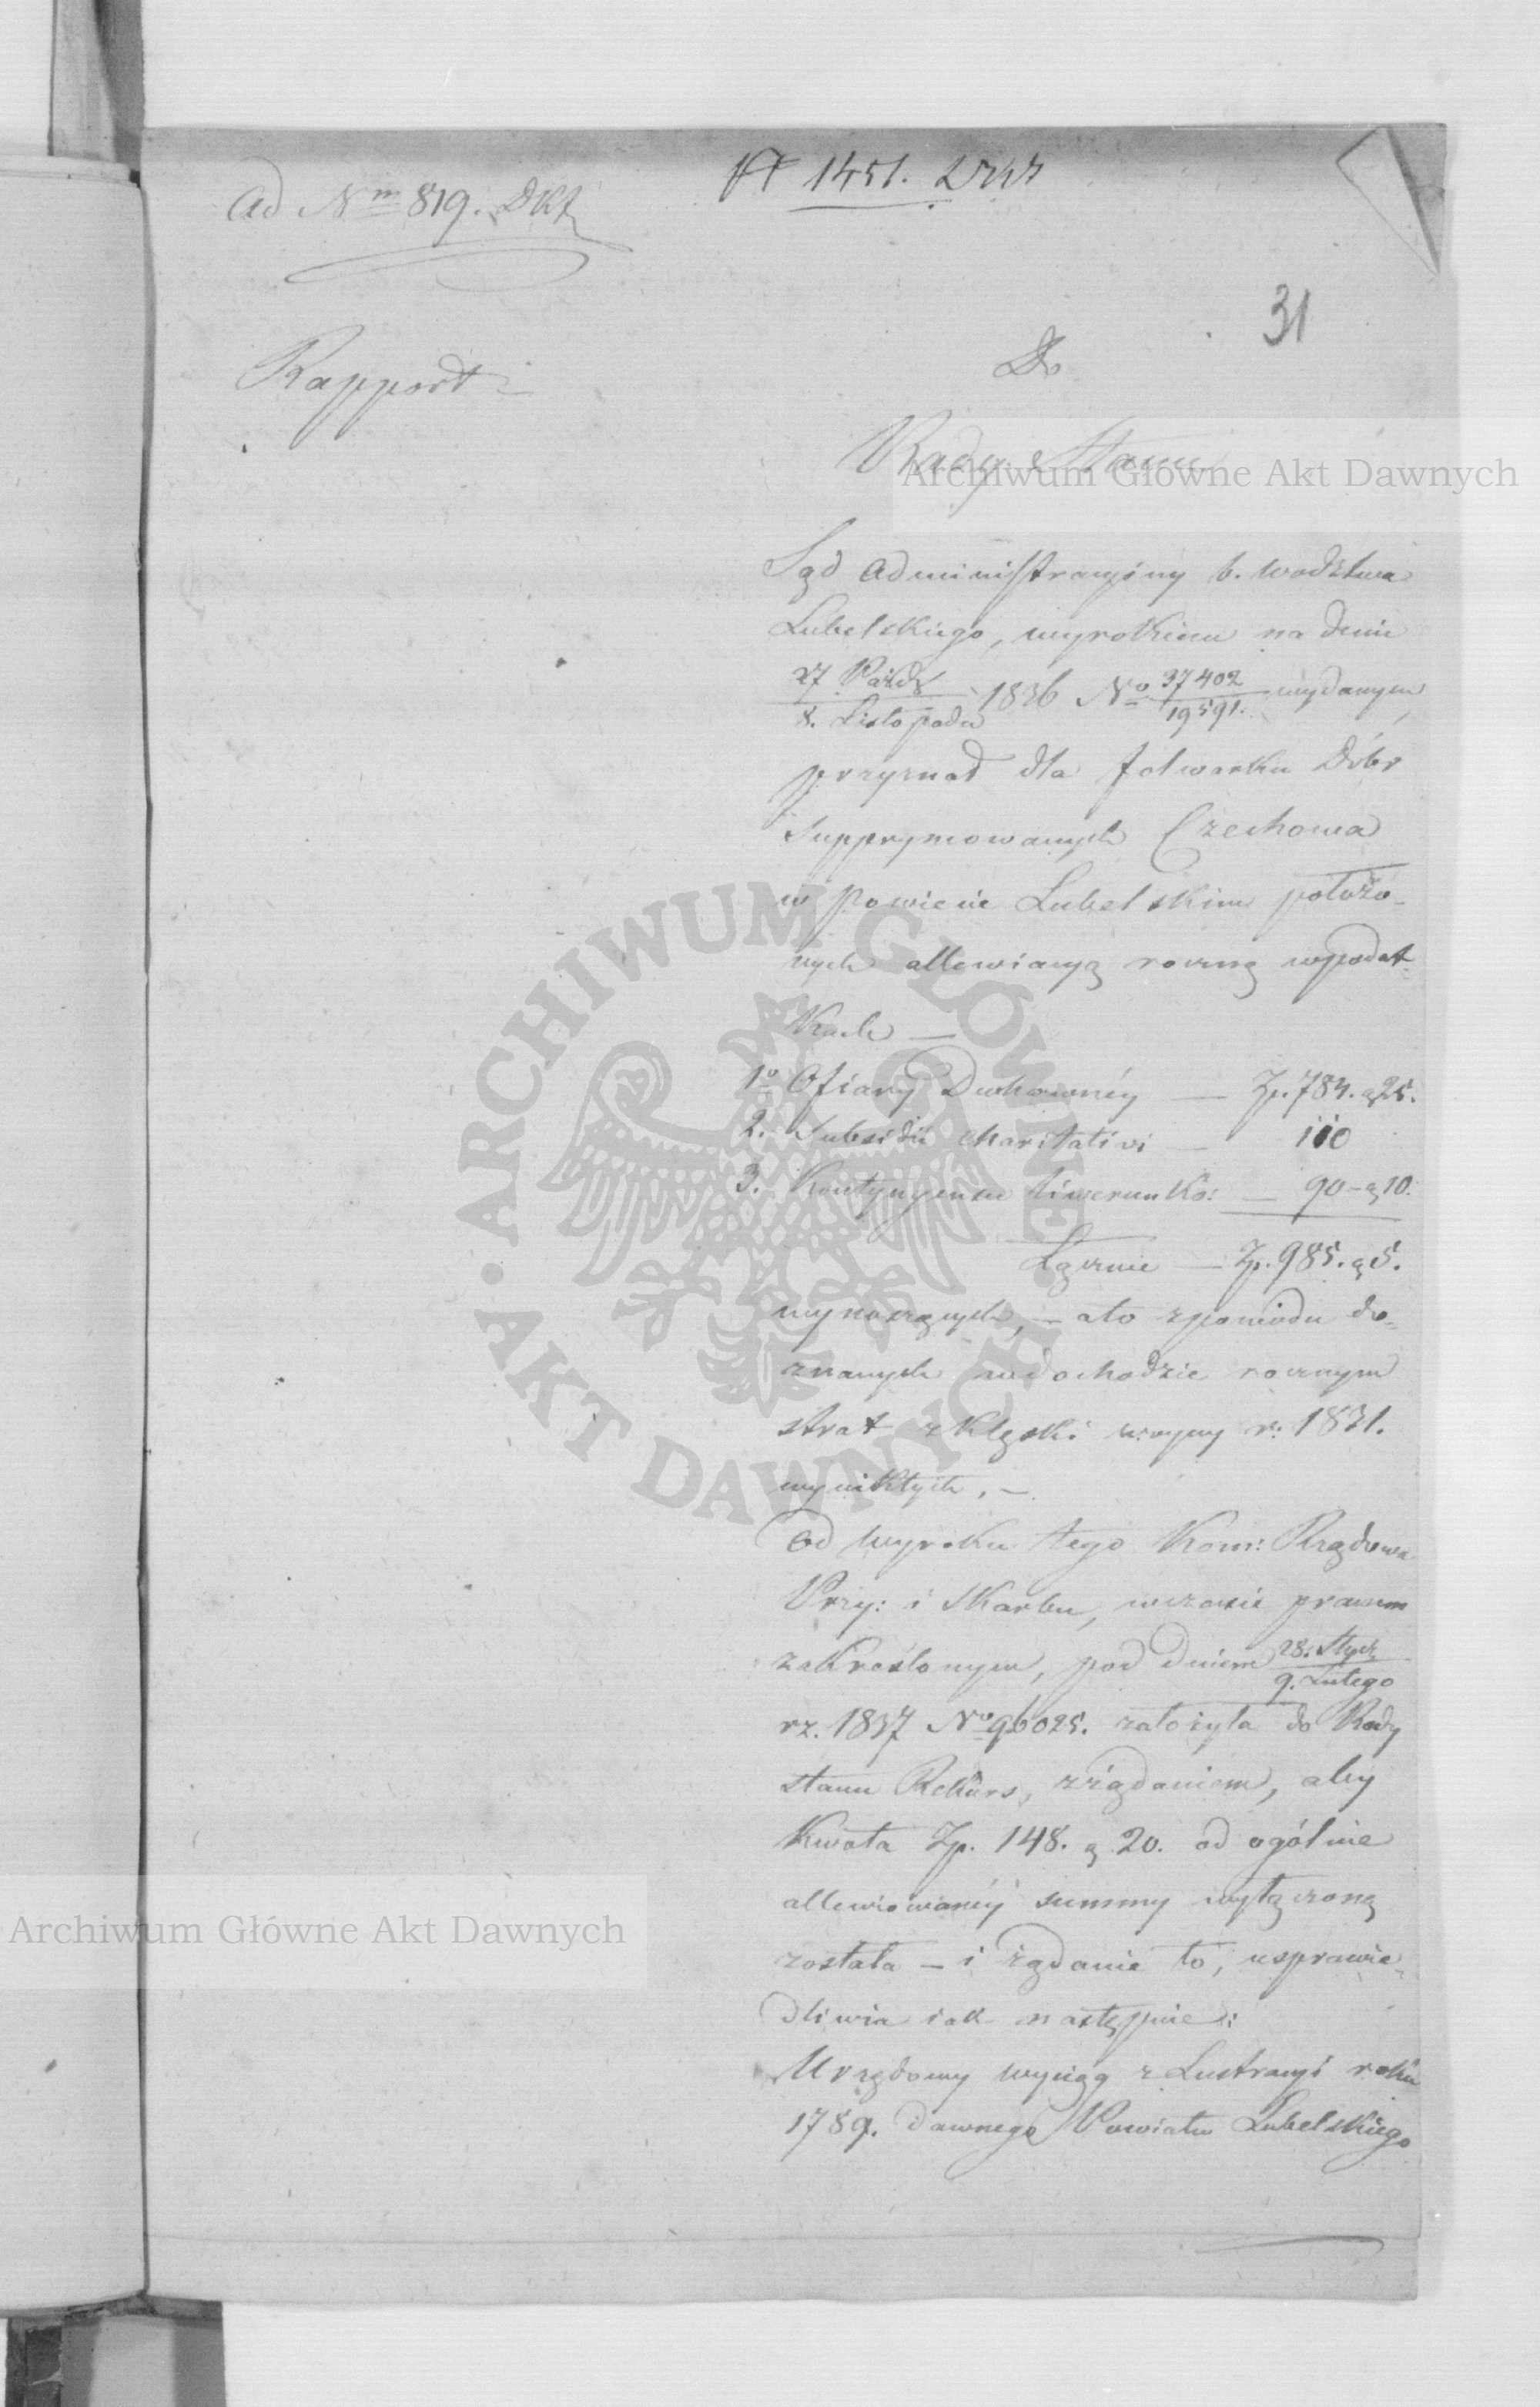 ad Nm 819. DKJ
1451.
31
Rapport
Do
Rady Stanu
Archiwum Główne Akt Dawnych
Sąd administracyiny b. wodztwa
Lubelskiego, wyrokiem na dniu
27 Paźdz / 8. Listopada 1836 No 37402 / 19591. wydanym,
przyznał dla folwarku Dóbr
supprymowanych Czechowa
w Powiecie Lubelskim położo-
nych allewiacyą roczną w podat-
kach —
1o Ofiary Duchownéy — Zp. 784. g 25.
2. Subsidii charitativi — 110
3. Kontyngensu liwerunko: — 90 – g 10.
Łącznie — Zp. 985. g 5.
wynoszących, — a to z powodu do-
znanych w dochodzie rocznym
strat z klęski woyny r: 1831.
wynikłych. —
Od wyroku tego Kom: Rządowa
Przy: i Skarbu, w czasie prawem
zakreślonym, pod dniem 28. Stycz / 9. Lutego
rz. 1837 No 96025. założyła do Rady
stanu Rekurs, z żądaniem, aby
kwota Zp. 148. g 20. od ogólnie
allewiowanéy summy wyłączoną
została – i żądanie to, usprawie-
dliwia iak następnie:
Urzędowy wyciąg z Lustracyi roku
1789. dawnego Powiatu Lubelskiego
Archiwum Główne Akt Dawnych
ARCHIWUM GŁÓWNE AKT DAWNYCH